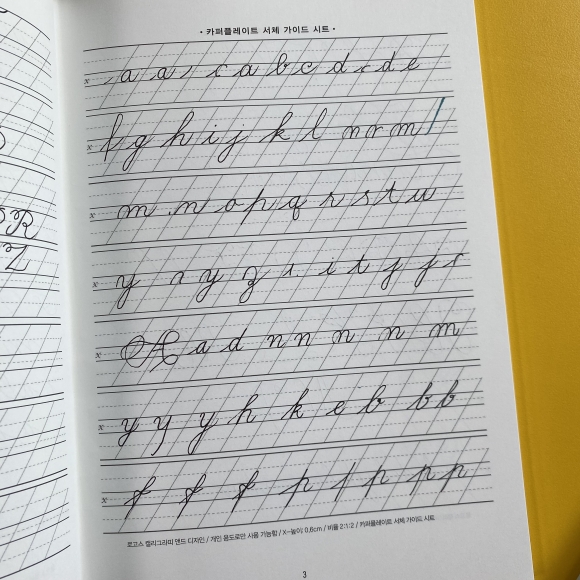 · 카퍼플레이트 서체 가이드 시트 ·
x a a c a b c d c d e
x f g h i j k l n r m
x m n o p q r s t u
x y n y z i t j j r
x A a d n n n n m
x y y y h k e b b b
x f f f p p p p
로고스 캘리그라피 앤드 디자인 / 개인 용도로만 사용 가능함 / X-높이: 0.6cm / 비율 2:1:2 / 카퍼플레이트 서체 가이드 시트
3
R
Z